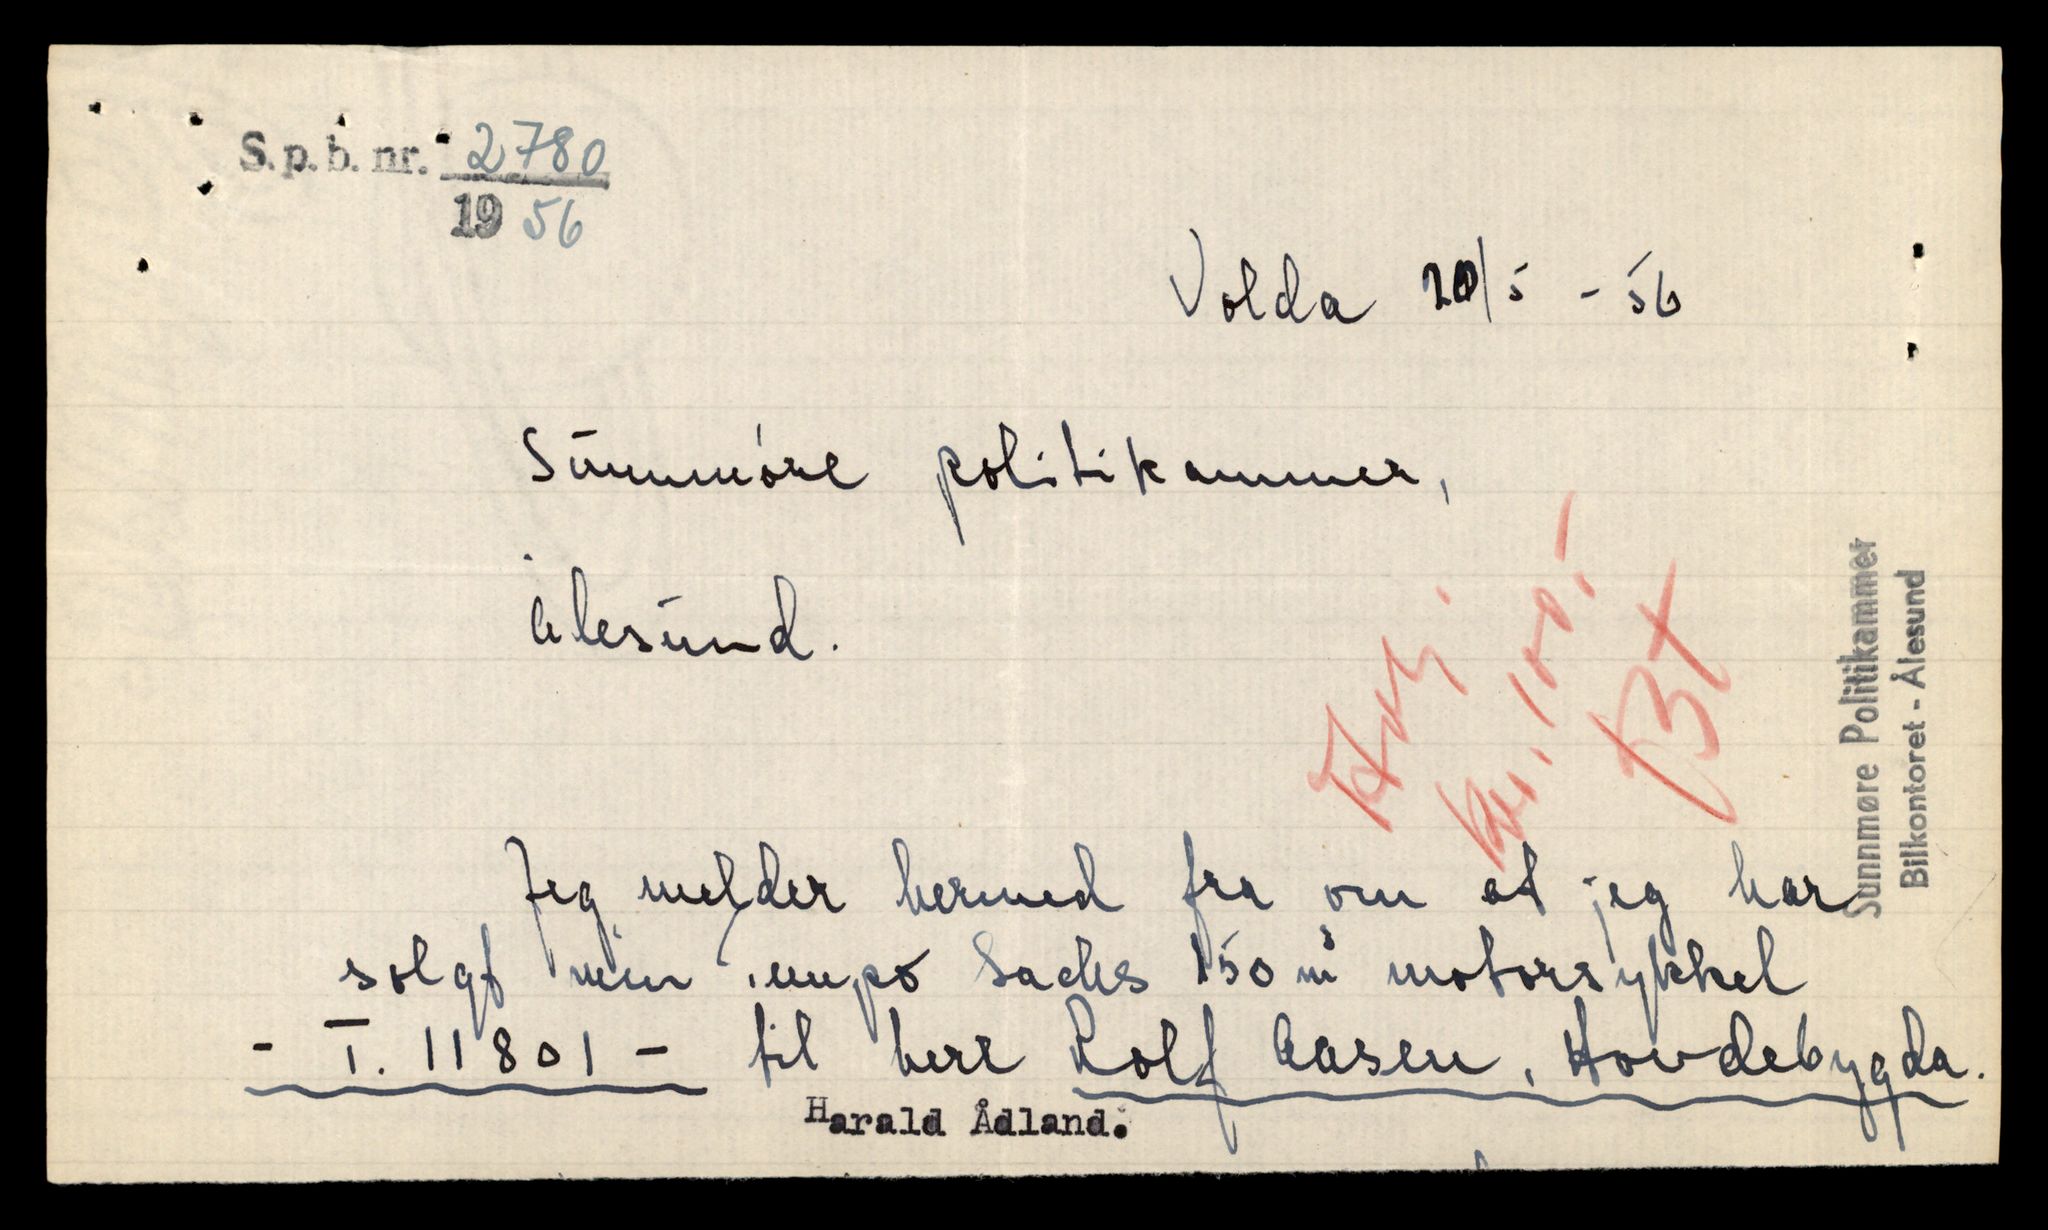 S.p.b. nr. 2780
19 56
Volda 20/5 - 56
Sunnmøre politikammer,
Ålesund.
kr. 100,-
Sunnmøre Politikammer
Bilkontoret - Ålesund
Jeg melder hermed fra om at jeg har
solgt min Tempo Sachs 150 m³ motorsykkel
- T. 11801 - til herr Rolf Aasen, Hovdebygda.
Harald Ådland.